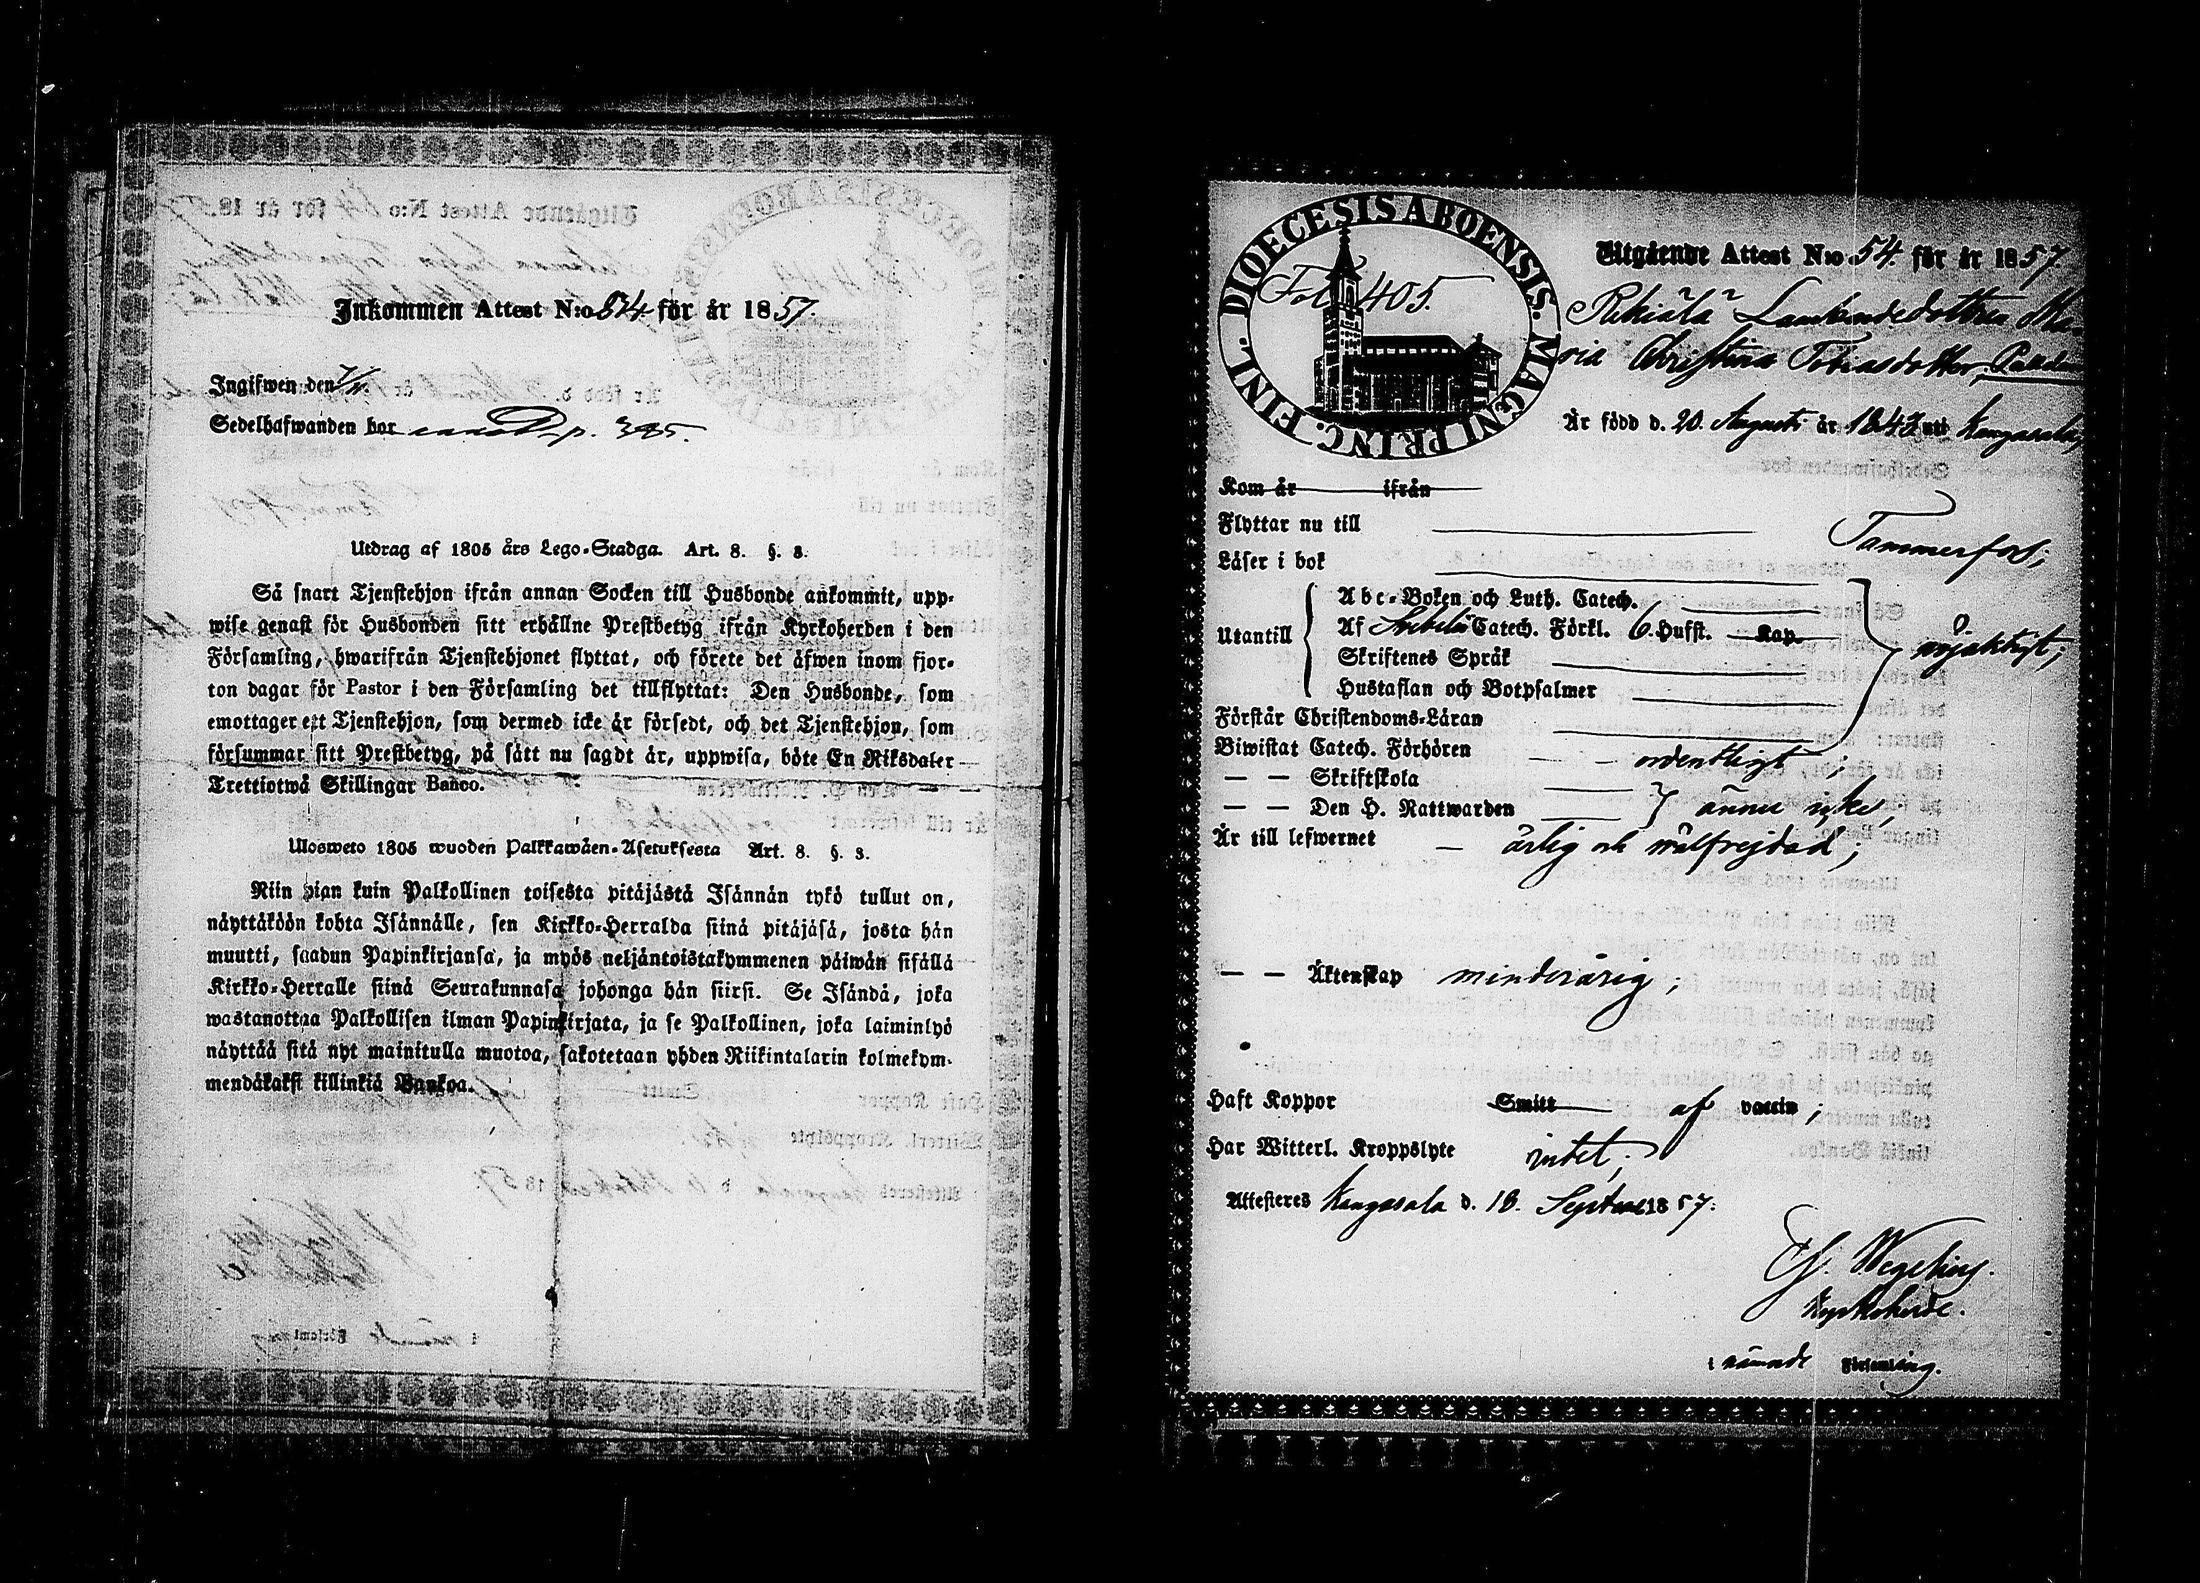 Inkommen Attest N:o 534 för år 1857.
Ingifwen den
Sedelhafwanden bor p. 385.
Utdrag af 1805 års Lego-Stadga. Art. 8. §. 3.
Så snart Tjenstehjon ifrån annan Socken till Husbonde ankommit, upp-
wise genast för Husbonden sitt erhållne Prestbetyg ifrån Kyrkoherden i den
Församling, hwarifrån Tjenstehjonet flyttat, och förete det äfwen inom fjor-
ton dagar för Pastor i den Församling det tillflyttat: Den Husbonde, som
emottager ett Tjenstehjon, som dermed icke är försedt, och det Tjenstehjon, som
försummar sitt Prestbetyg, på sätt nu sagdt är, uppwisa, böte En Riksdaler
Trettiotwå Skillingar Banco.
Ulosweto 1805 wuoden Palkkawäen-Asetuksesta Art. 8. §. 3.
Niin pian kuin Palkollinen toisesta pitäjästä Isännän tykö tullut on,
näyttäköön kohta Isännälle, sen Kirkko-Herralda siinä pitäjäsä, josta hän
muutti, saadun Papinkirjansa, ja myös neljäntoistakymmenen päiwän sisällä
Kirkko-Herralle siinä Seurakunnasa johonga hän siirsi. Se Isändä, joka
wastanottaa Palkollisen ilman Papinkirjata, ja se Palkollinen, joka laiminlyö
näyttää sitä nyt mainitulla muotoa, sakotetaan yhden Riikintalarin kolmekym-
mendäkaksi killinkiä Bankoa.
DIOECESIS ABOENSIS. MAGNI PRINC. FINL.
Fol. 405.
Utgående Attest N:o 54. för år 1857.
Ma-
ria Christina Tobiasdotter,
Är född d. 20. Augusti år 1843 uti Kangasala,
Kom år ifrån
Flyttar nu till Tammerfors;
Läser i bok
Utantill
Abc-Boken och Luth. Catech.
Af Svebelii Catech. Förkl. 6. Hufst. Kap.
Skriftenes Språk
Hustaflan och Botpsalmer
nöjaktigt;
Förstår Christendoms-Läran
Biwistat Catech. Förhören ordentligt;
— — Skriftskola
— — Den H. Nattwarden } ännu icke;
Är till lefwernet — ärlig och wälfrejdad;
— — Äktenskap minderårig;
Haft Koppor Smitt af vaccin;
Har Witterl. Kroppslyte intet;
Attesteres Kangasala d. 18. Septber 1857.
Kyrkoherde.
i nämnde Församling.